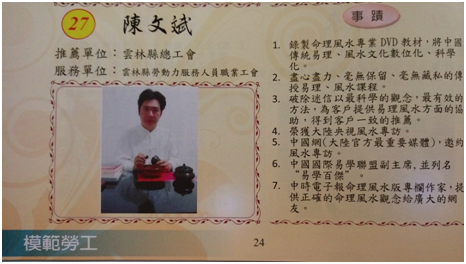 27 陳文斌
推薦單位：雲林縣總工會
服務單位：雲林縣勞動力服務人員職業工會
事蹟
1. 錄製命理風水專業DVD教材，將中國
傳統易理、風水文化數位化、科學
化。
2. 盡心盡力、毫無保留、毫無藏私的傳
授易理、風水課程。
3. 破除迷信以最科學的觀念，最有效的
方法，為客戶提供易理風水方面的協
助，得到客戶一致的推薦。
4. 榮獲大陸央視風水專訪。
5. 中國網(大陸官方最重要媒體)，邀約
風水專訪。
6. 中國國際易學聯盟副主席，並列名
“易學百傑”。
7. 中時電子報命理風水版專欄作家，提
供正確的命理風水觀念給廣大的網
友。
模範勞工
24